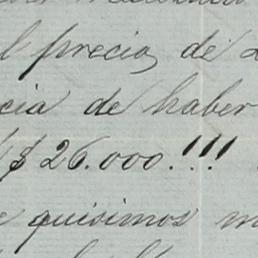 l precio, de 2
cia de haber
$26.000.!!!
e quisimos m